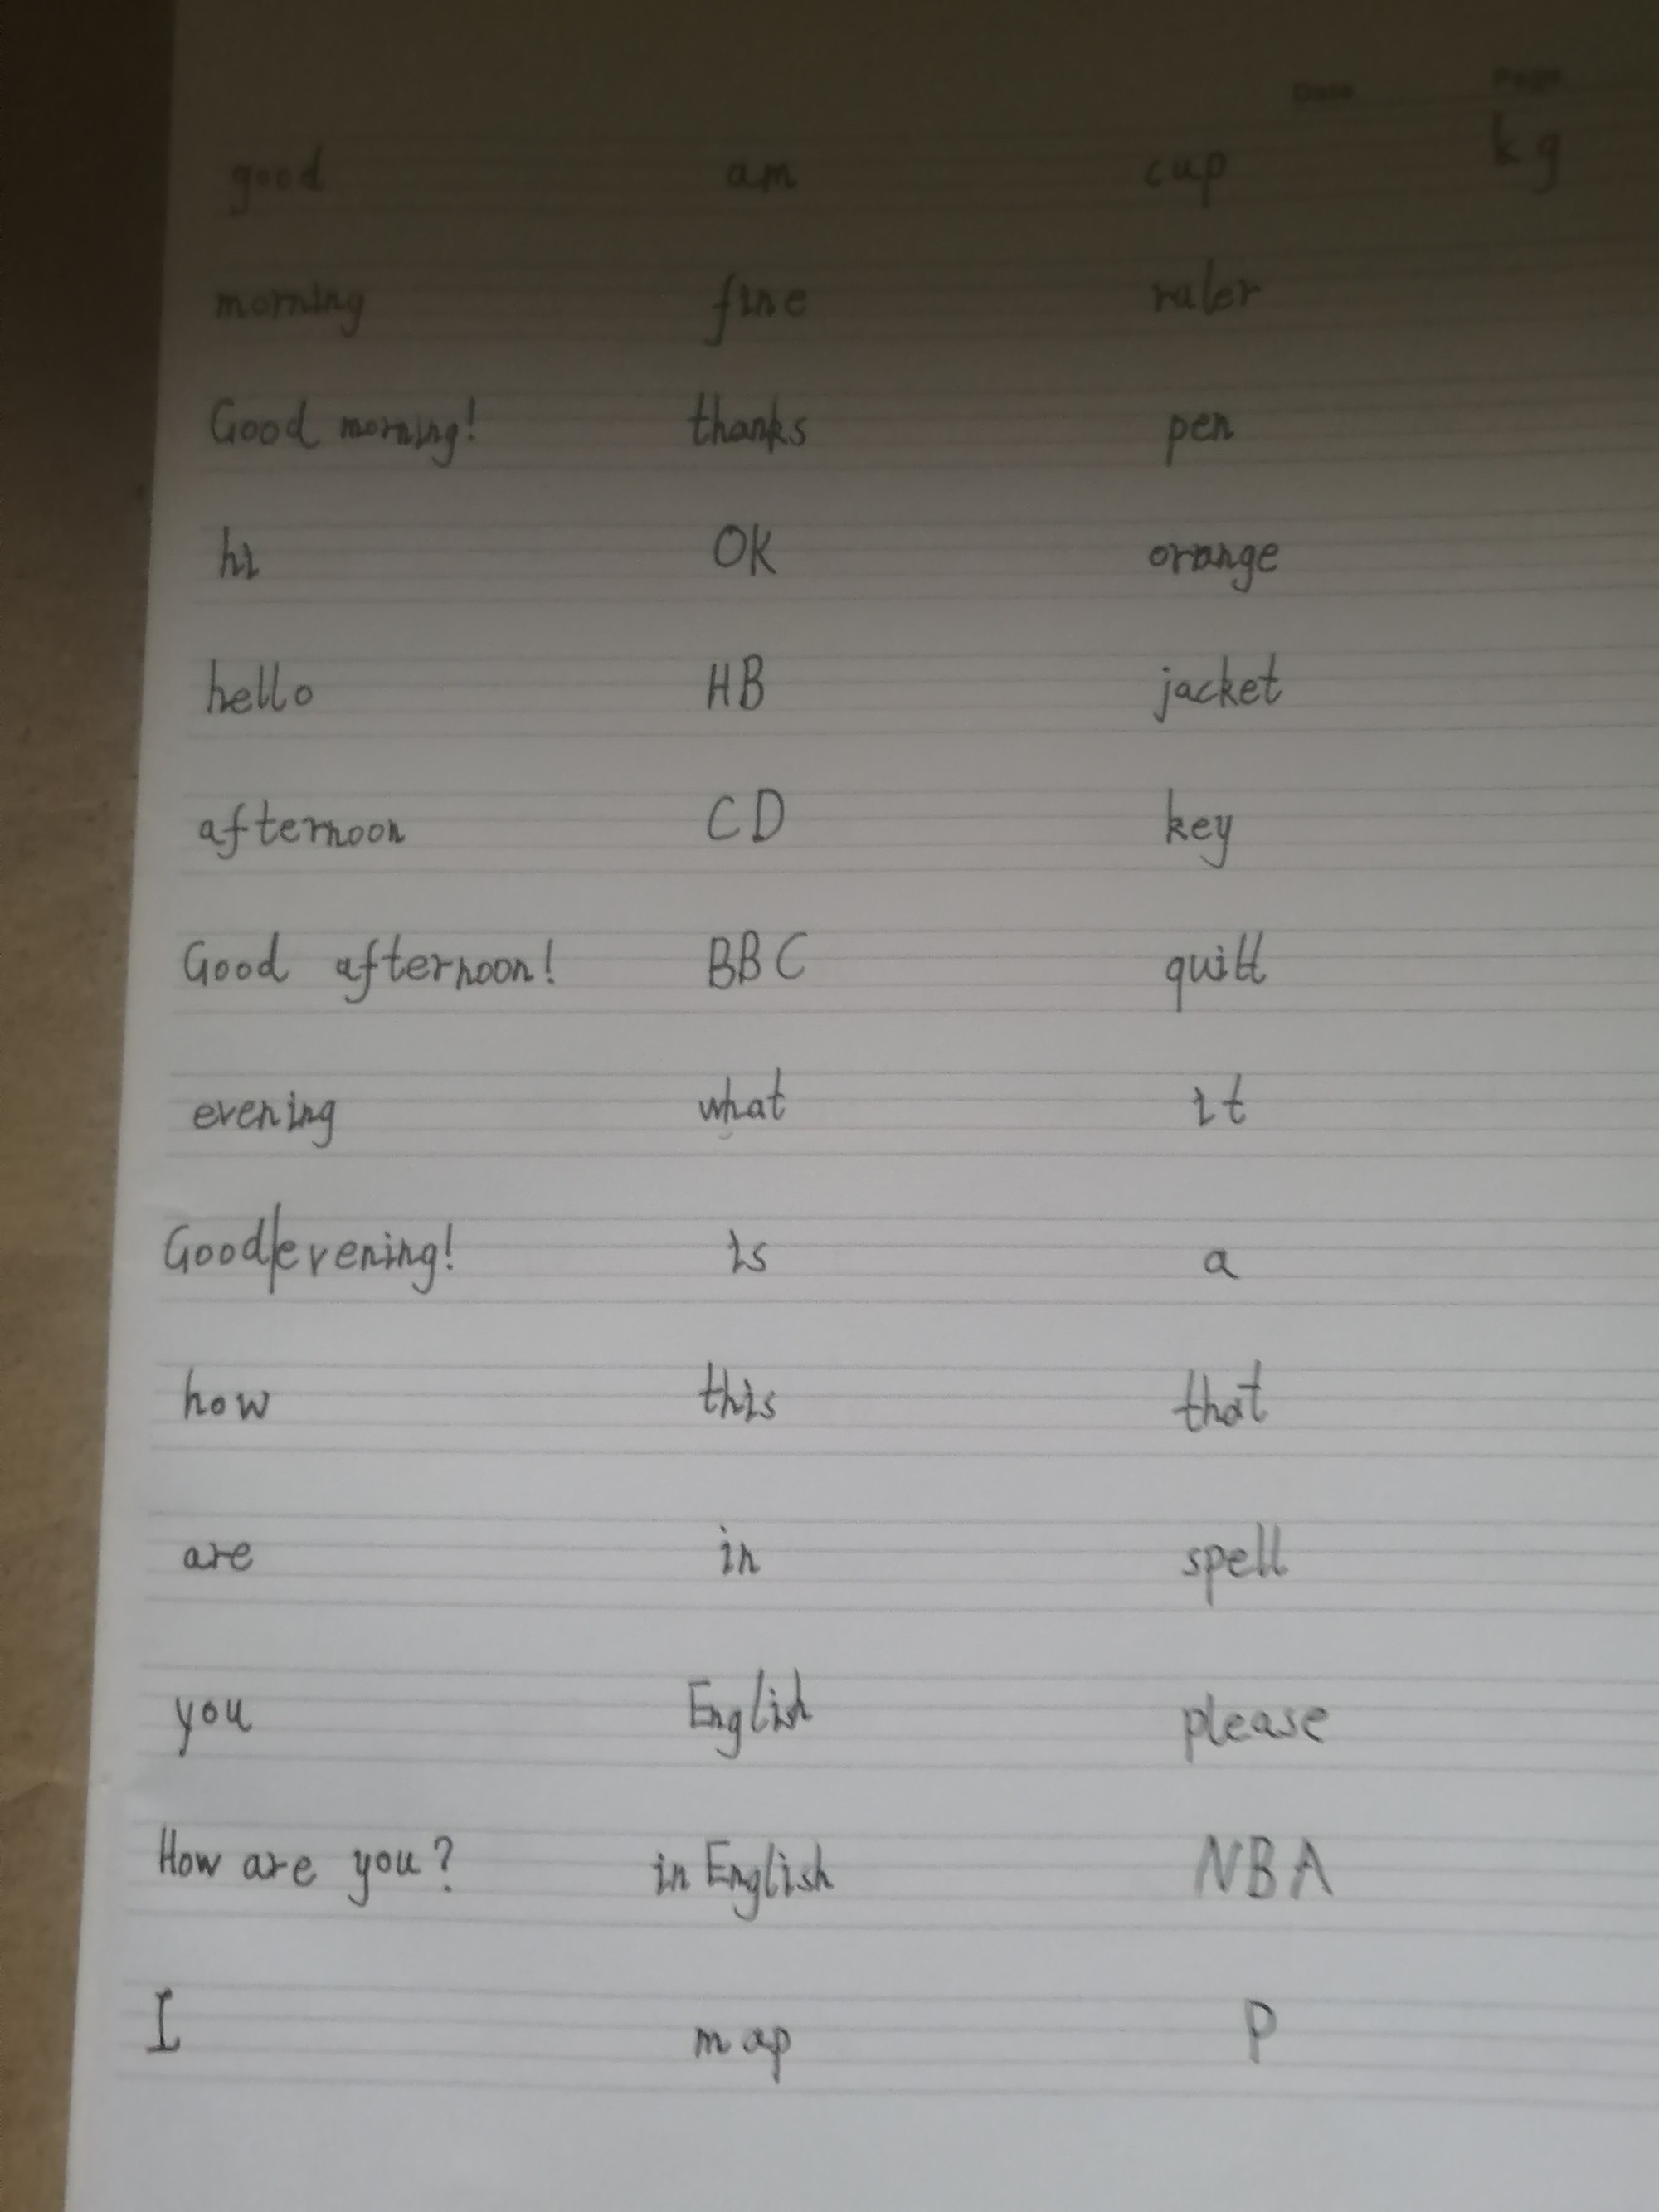 Date Page
good am cup kg
morning fine ruler
Good morning! thanks pen
hi OK orange
hello HB jacket
afternoon CD key
Good afternoon! BBC quilt
evening what it
Good/evening! is a
how this that
are in spell
you English please
How are you? in English NBA
I map P